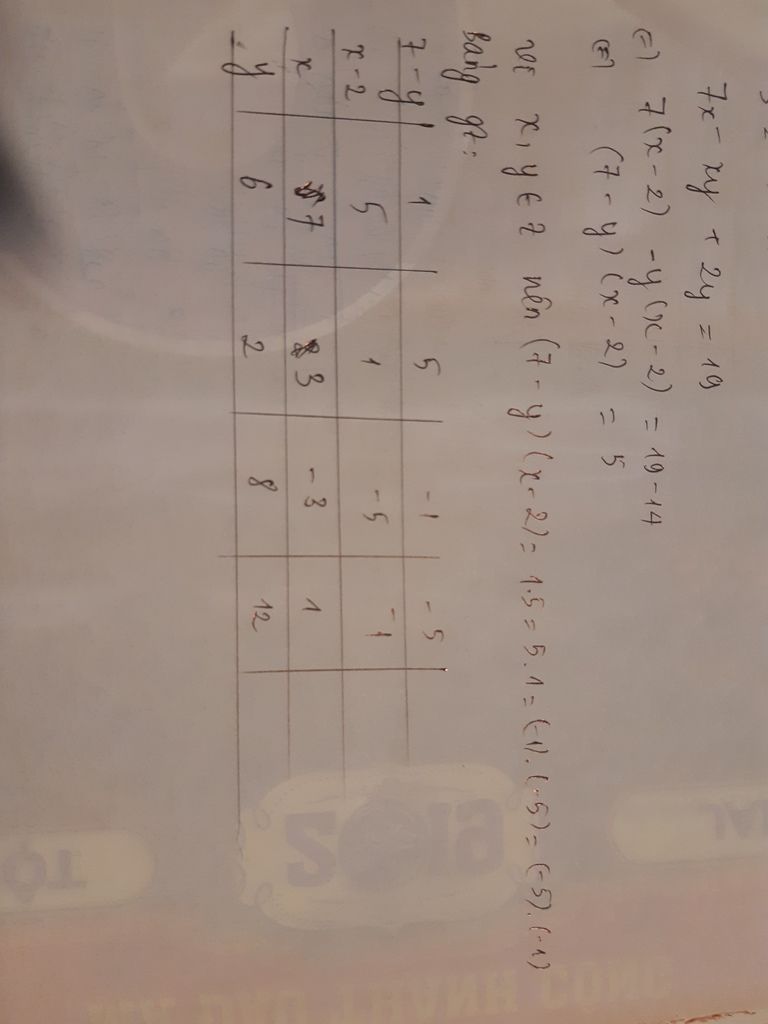 7x - xy + 2y = 19
(=) 7(x-2) - y(x-2) = 19-14
(=) (7-y)(x-2) = 5
vì x, y ∈ Z nên (7-y)(x-2) = 1.5 = 5.1 = (-1).(-5) = (-5).(-1)
bảng gt:
7-y 1 5 -1 -5
x-2 5 1 -5 -1
x 7 3 -3 1
y 6 2 8 12
2019
TỘT